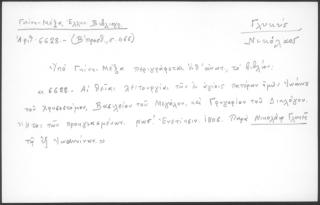 Γκίνη-Μέξα Ἑλλην. Βιβλιογρ.
Γλυκύς
Ἀριθ. 6628.- (Β' προσθ., σ.
Νικόλαος
Ὑπὸ Γκίνη-Μέξα περιγράφεται τὸ βιβλίον:
« 6628. Αἱ θεῖαι λειτουργίαι τῶν ἐν ἁγίοις πατέρων ἡμῶν Ἰωάννου
τοῦ Χρυσοστόμου, Βασιλείου τοῦ Μεγάλου, καὶ Γρηγορίου τοῦ Διαλόγου.
ἤτοι τῶν προηγιασμένων. Ἐνετίησιν. 1806. Παρὰ Νικολάῳ Γλυκεῖ
τῷ ἐξ Ἰωαννίνων.»